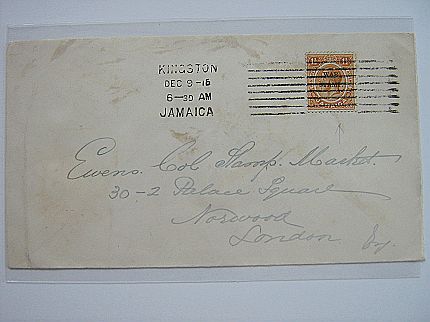 KINGSTON
DEC 9-16
6-30 AM
JAMAICA
WAR
Ewens Col Stamp Market.
30-2 Palace Square
Norwood
London